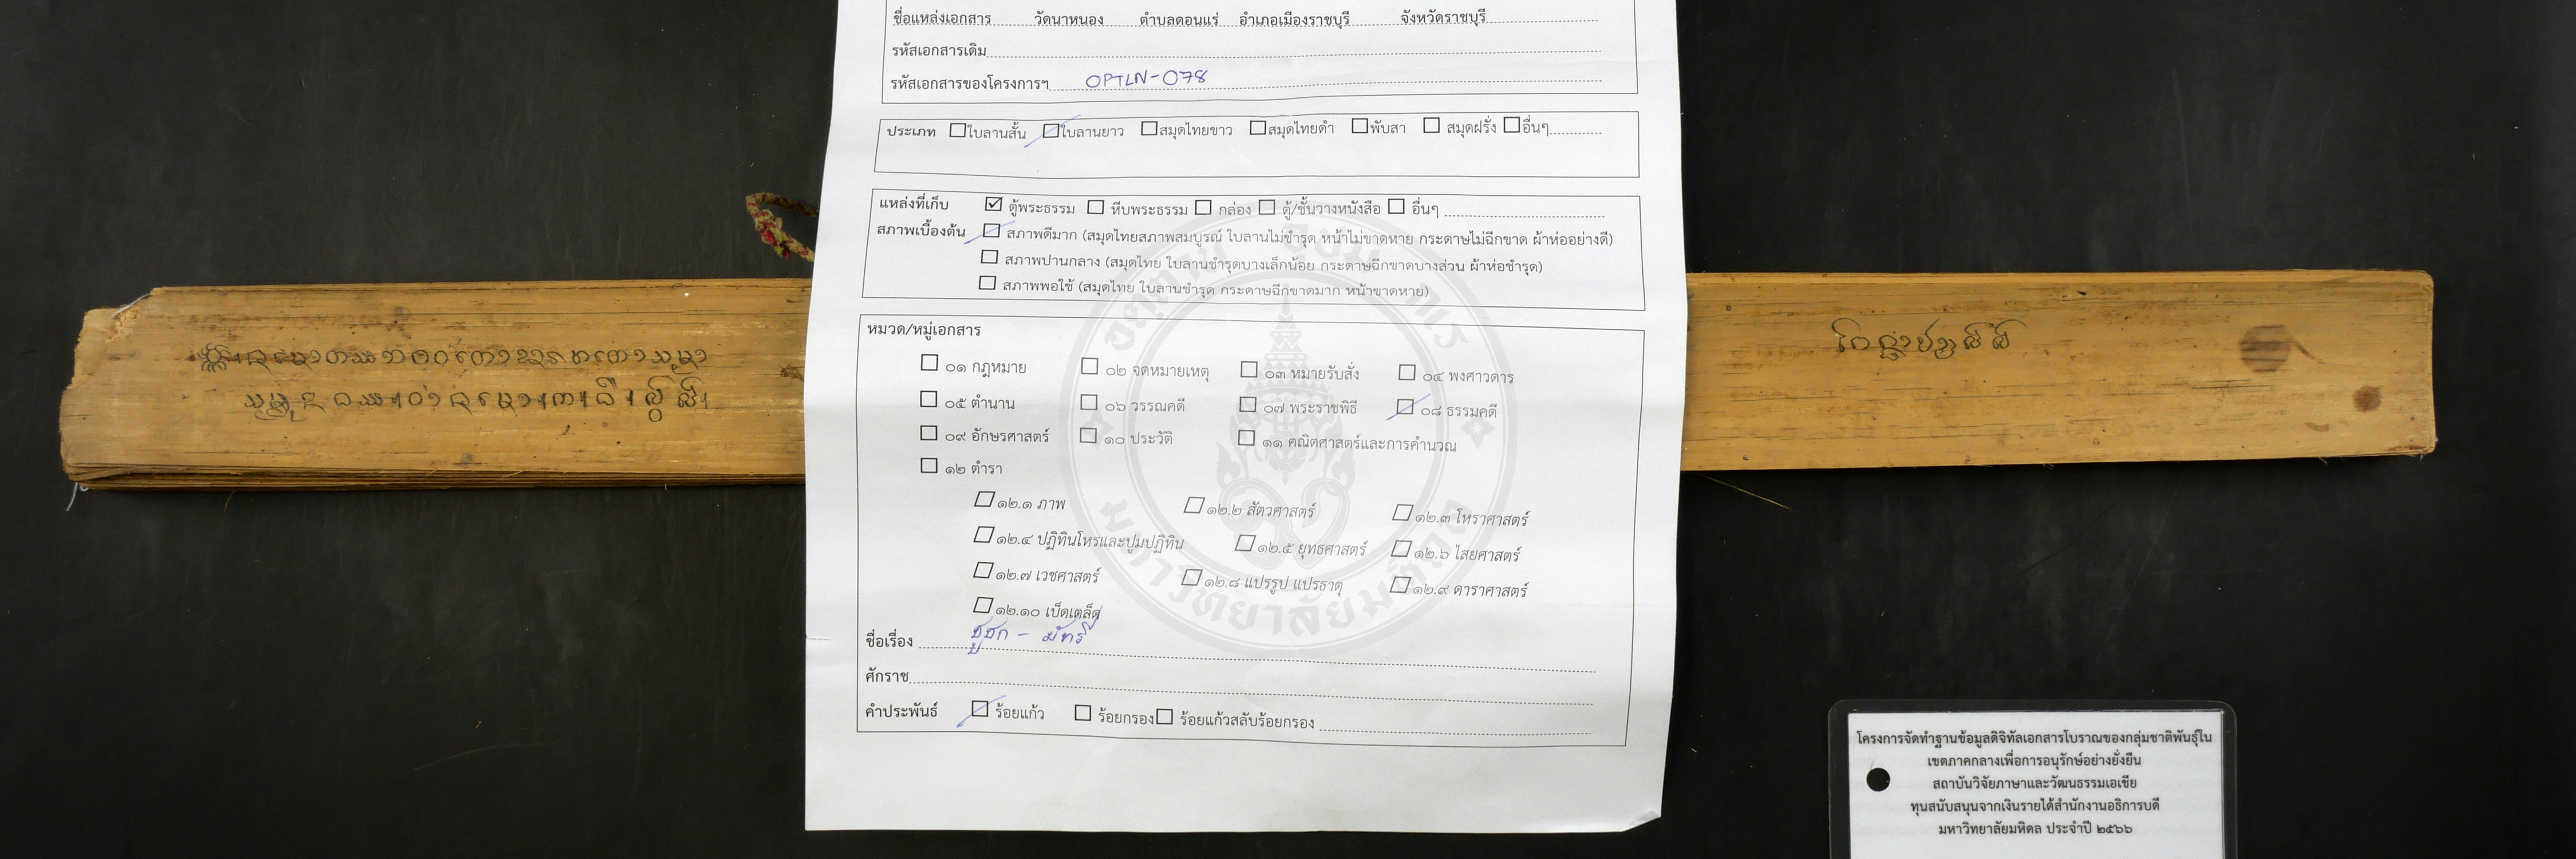 ชื่อแหล่งเอกสาร วัดนาหนอง ตำบลดอนแร่ อำเภอเมืองราชบุรี จังหวัดราชบุรี
รหัสเอกสารเดิม
รหัสเอกสารของโครงการฯ OPTLN-078
ประเภท ใบลานสั้น ใบลานยาว สมุดไทยขาว สมุดไทยดำ พับสา สมุดฝรั่ง อื่นๆ
แหล่งที่เก็บ ตู้พระธรรม หีบพระธรรม กล่อง ตู้/ชั้นวางหนังสือ อื่นๆ
สภาพเบื้องต้น สภาพดีมาก (สมุดไทยสภาพสมบูรณ์ ใบลานไม่ชำรุด หน้าไม่ขาดหาย กระดาษไม่ฉีกขาด ผ้าห่ออย่างดี)
สภาพปานกลาง (สมุดไทย ใบลานชำรุดบางเล็กน้อย กระดาษฉีกขาดบางส่วน ผ้าห่อชำรุด)
สภาพพอใช้ (สมุดไทย ใบลานชำรุด กระดาษฉีกขาดมาก หน้าขาดหาย)
หมวด/หมู่เอกสาร
๐๑ กฎหมาย ๐๒ จดหมายเหตุ ๐๓ หมายรับสั่ง ๐๔ พงศาวดาร
๐๕ ตำนาน ๐๖ วรรณคดี ๐๗ พระราชพิธี ๐๘ ธรรมคดี
๐๙ อักษรศาสตร์ ๑๐ ประวัติ ๑๑ คณิตศาสตร์และการคำนวณ
๑๒ ตำรา
๑๒.๑ ภาพ ๑๒.๒ สัตวศาสตร์ ๑๒.๓ โหราศาสตร์
๑๒.๔ ปฏิทินโหรและปูมปฏิทิน ๑๒.๕ ยุทธศาสตร์ ๑๒.๖ ไสยศาสตร์
๑๒.๗ เวชศาสตร์ ๑๒.๘ แปรรูป แปรธาตุ ๑๒.๙ ดาราศาสตร์
๑๒.๑๐ เบ็ดเตล็ด
ชื่อเรื่อง ชูชก - มัทรี
ศักราช
คำประพันธ์ ร้อยแก้ว ร้อยกรอง ร้อยแก้วสลับร้อยกรอง
มหาวิทยาลัยมหิดล
โครงการจัดทำฐานข้อมูลดิจิทัลเอกสารโบราณของกลุ่มชาติพันธุ์ใน
เขตภาคกลางเพื่อการอนุรักษ์อย่างยั่งยืน
สถาบันวิจัยภาษาและวัฒนธรรมเอเชีย
ทุนสนับสนุนจากเงินรายได้สำนักงานอธิการบดี
มหาวิทยาลัยมหิดล ประจำปี ๒๕๖๖